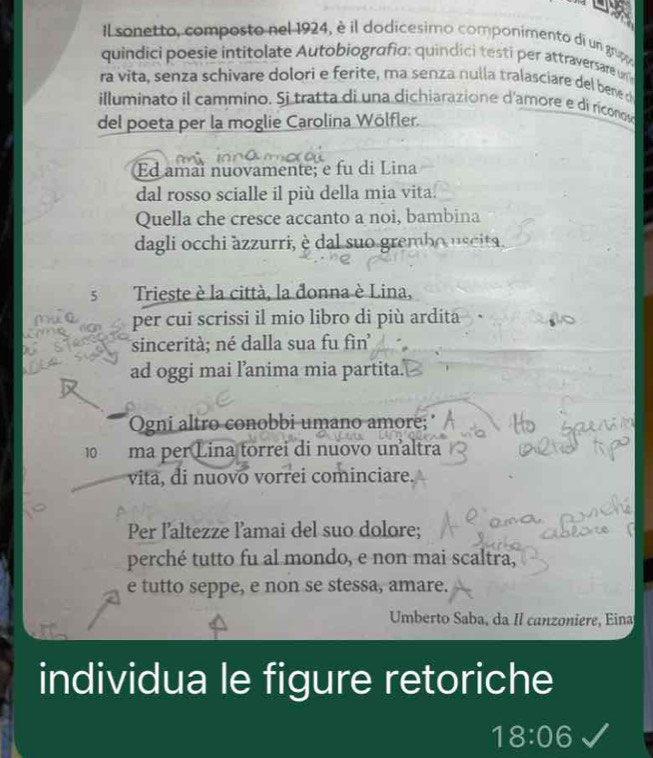 Il sonetto, composto nel 1924, è il dodicesimo componimento di un grupp
quindici poesie intitolate Autobiografia: quindici testi per attraversare un'
ra vita, senza schivare dolori e ferite, ma senza nulla tralasciare del bene
illuminato il cammino. Si tratta di una dichiarazione d'amore e di riconos
del poeta per la moglie Carolina Wölfler.
mi innamorai
Ed amai nuovamente; e fu di Lina
dal rosso scialle il più della mia vita.
Quella che cresce accanto a noi, bambina
dagli occhi azzurri, è dal suo grembo uscita.
5 Trieste è la città, la donna è Lina,
per cui scrissi il mio libro di più ardita
mia
non
sincerità; né dalla sua fu fin'
A
ad oggi mai l'anima mia partita.
B
Ogni altro conobbi umano amore;
A
Ho
10 ma per Lina torrei di nuovo un'altra
B
altro tipo
vita, di nuovo vorrei cominciare.
A
Per l'altezze l'amai del suo dolore;
A
ama
perché tutto fu al mondo, e non mai scaltra,
furba
B
e tutto seppe, e non se stessa, amare.
A
Umberto Saba, da Il canzoniere, Eina
individua le figure retoriche
18:06